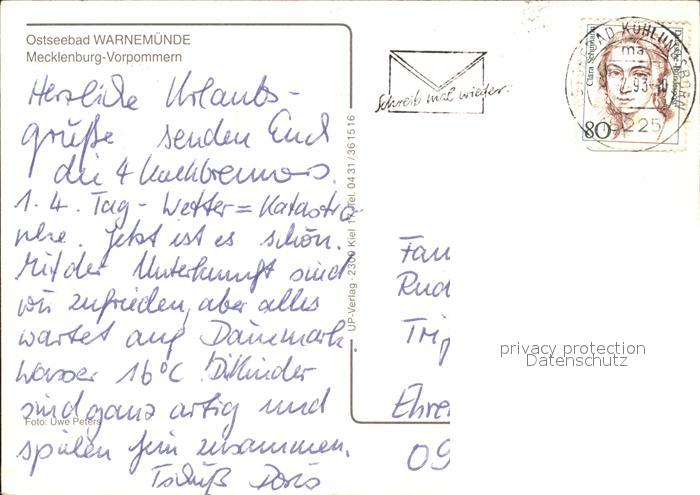 Ostseebad WARNEMÜNDE
Mecklenburg-Vorpommern
Herzliche Urlaubs-
grüße senden Euch
die 4
1.-4. Tag - Wetter = Katastro-
phe. Jetzt ist es schön.
Mit der Unterkunft sind
wir zufrieden, aber alles
wartet auf Dänemark.
Wasser 16°C. Die Kinder
sind ganz artig und
spielen fein zusammen.
Tschüß Doris
Foto: Uwe Peters
UP-Verlag · 2300 Kiel 17, Tel. 04 31 / 36 15 16
Schreib mal wieder.
Clara Schumann
Deutsche Bundespost
80
OSTSEEBAD KÜHLUNGSBORN
ma
93-10
18225
Fam
Rud
Trip
Ehre
09
privacy protection
Datenschutz